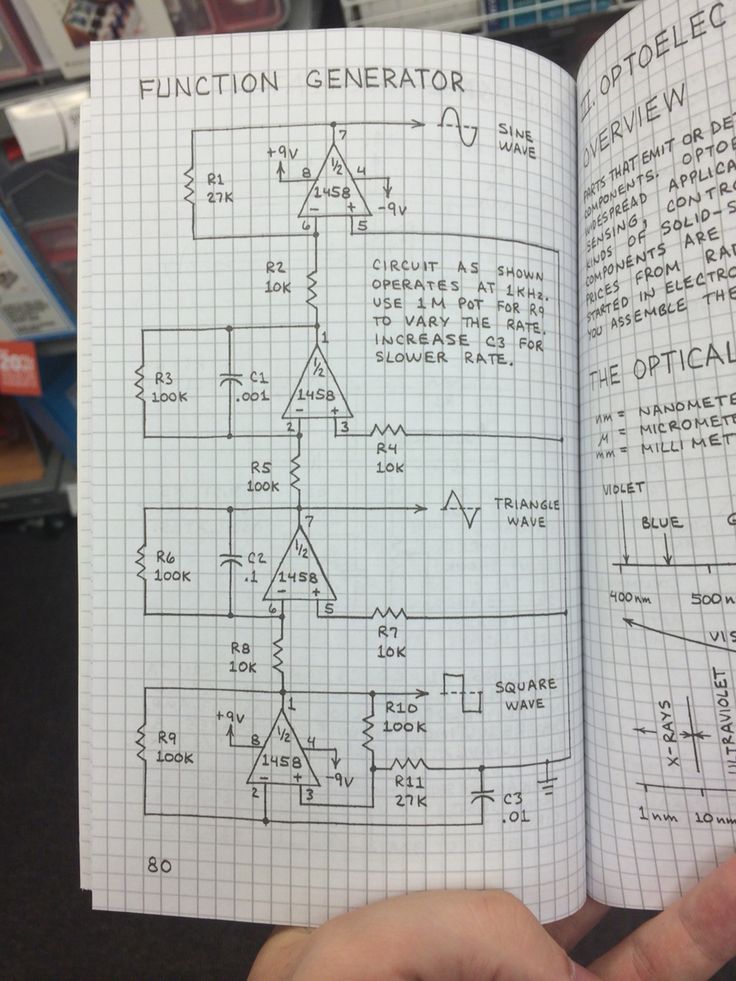 FUNCTION GENERATOR
7
SINE
WAVE
+9V
8
1/2
4
R1
27K
1458
-9V
-
+
6
5
R2
10K
CIRCUIT AS SHOWN
OPERATES AT 1KHz.
USE 1M POT FOR R9
TO VARY THE RATE.
INCREASE C3 FOR
SLOWER RATE.
1
1/2
R3
100K
C1
.001
1458
-
+
2
3
R4
10K
R5
100K
7
TRIANGLE
WAVE
1/2
R6
100K
C2
.1
1458
-
+
6
5
R7
10K
R8
10K
1
SQUARE
WAVE
R10
100K
+9V
8
1/2
4
R9
100K
1458
-9V
-
+
2
3
R11
27K
C3
.01
80
II. OPTOELEC
OVERVIEW
PARTS THAT EMIT OR DE
COMPONENTS. OPTOE
WIDESPREAD APPLICA
SENSING, CONTRO
KINDS OF SOLID-S
COMPONENTS ARE
PRICES FROM RAD
STARTED IN ELECTRO
YOU ASSEMBLE THE
THE OPTICAL
nm = NANOMETE
μ = MICROMETE
mm = MILLIMET
VIOLET
BLUE
400nm
500n
VIS
X-RAYS
ULTRAVIOLET
1nm
10nm